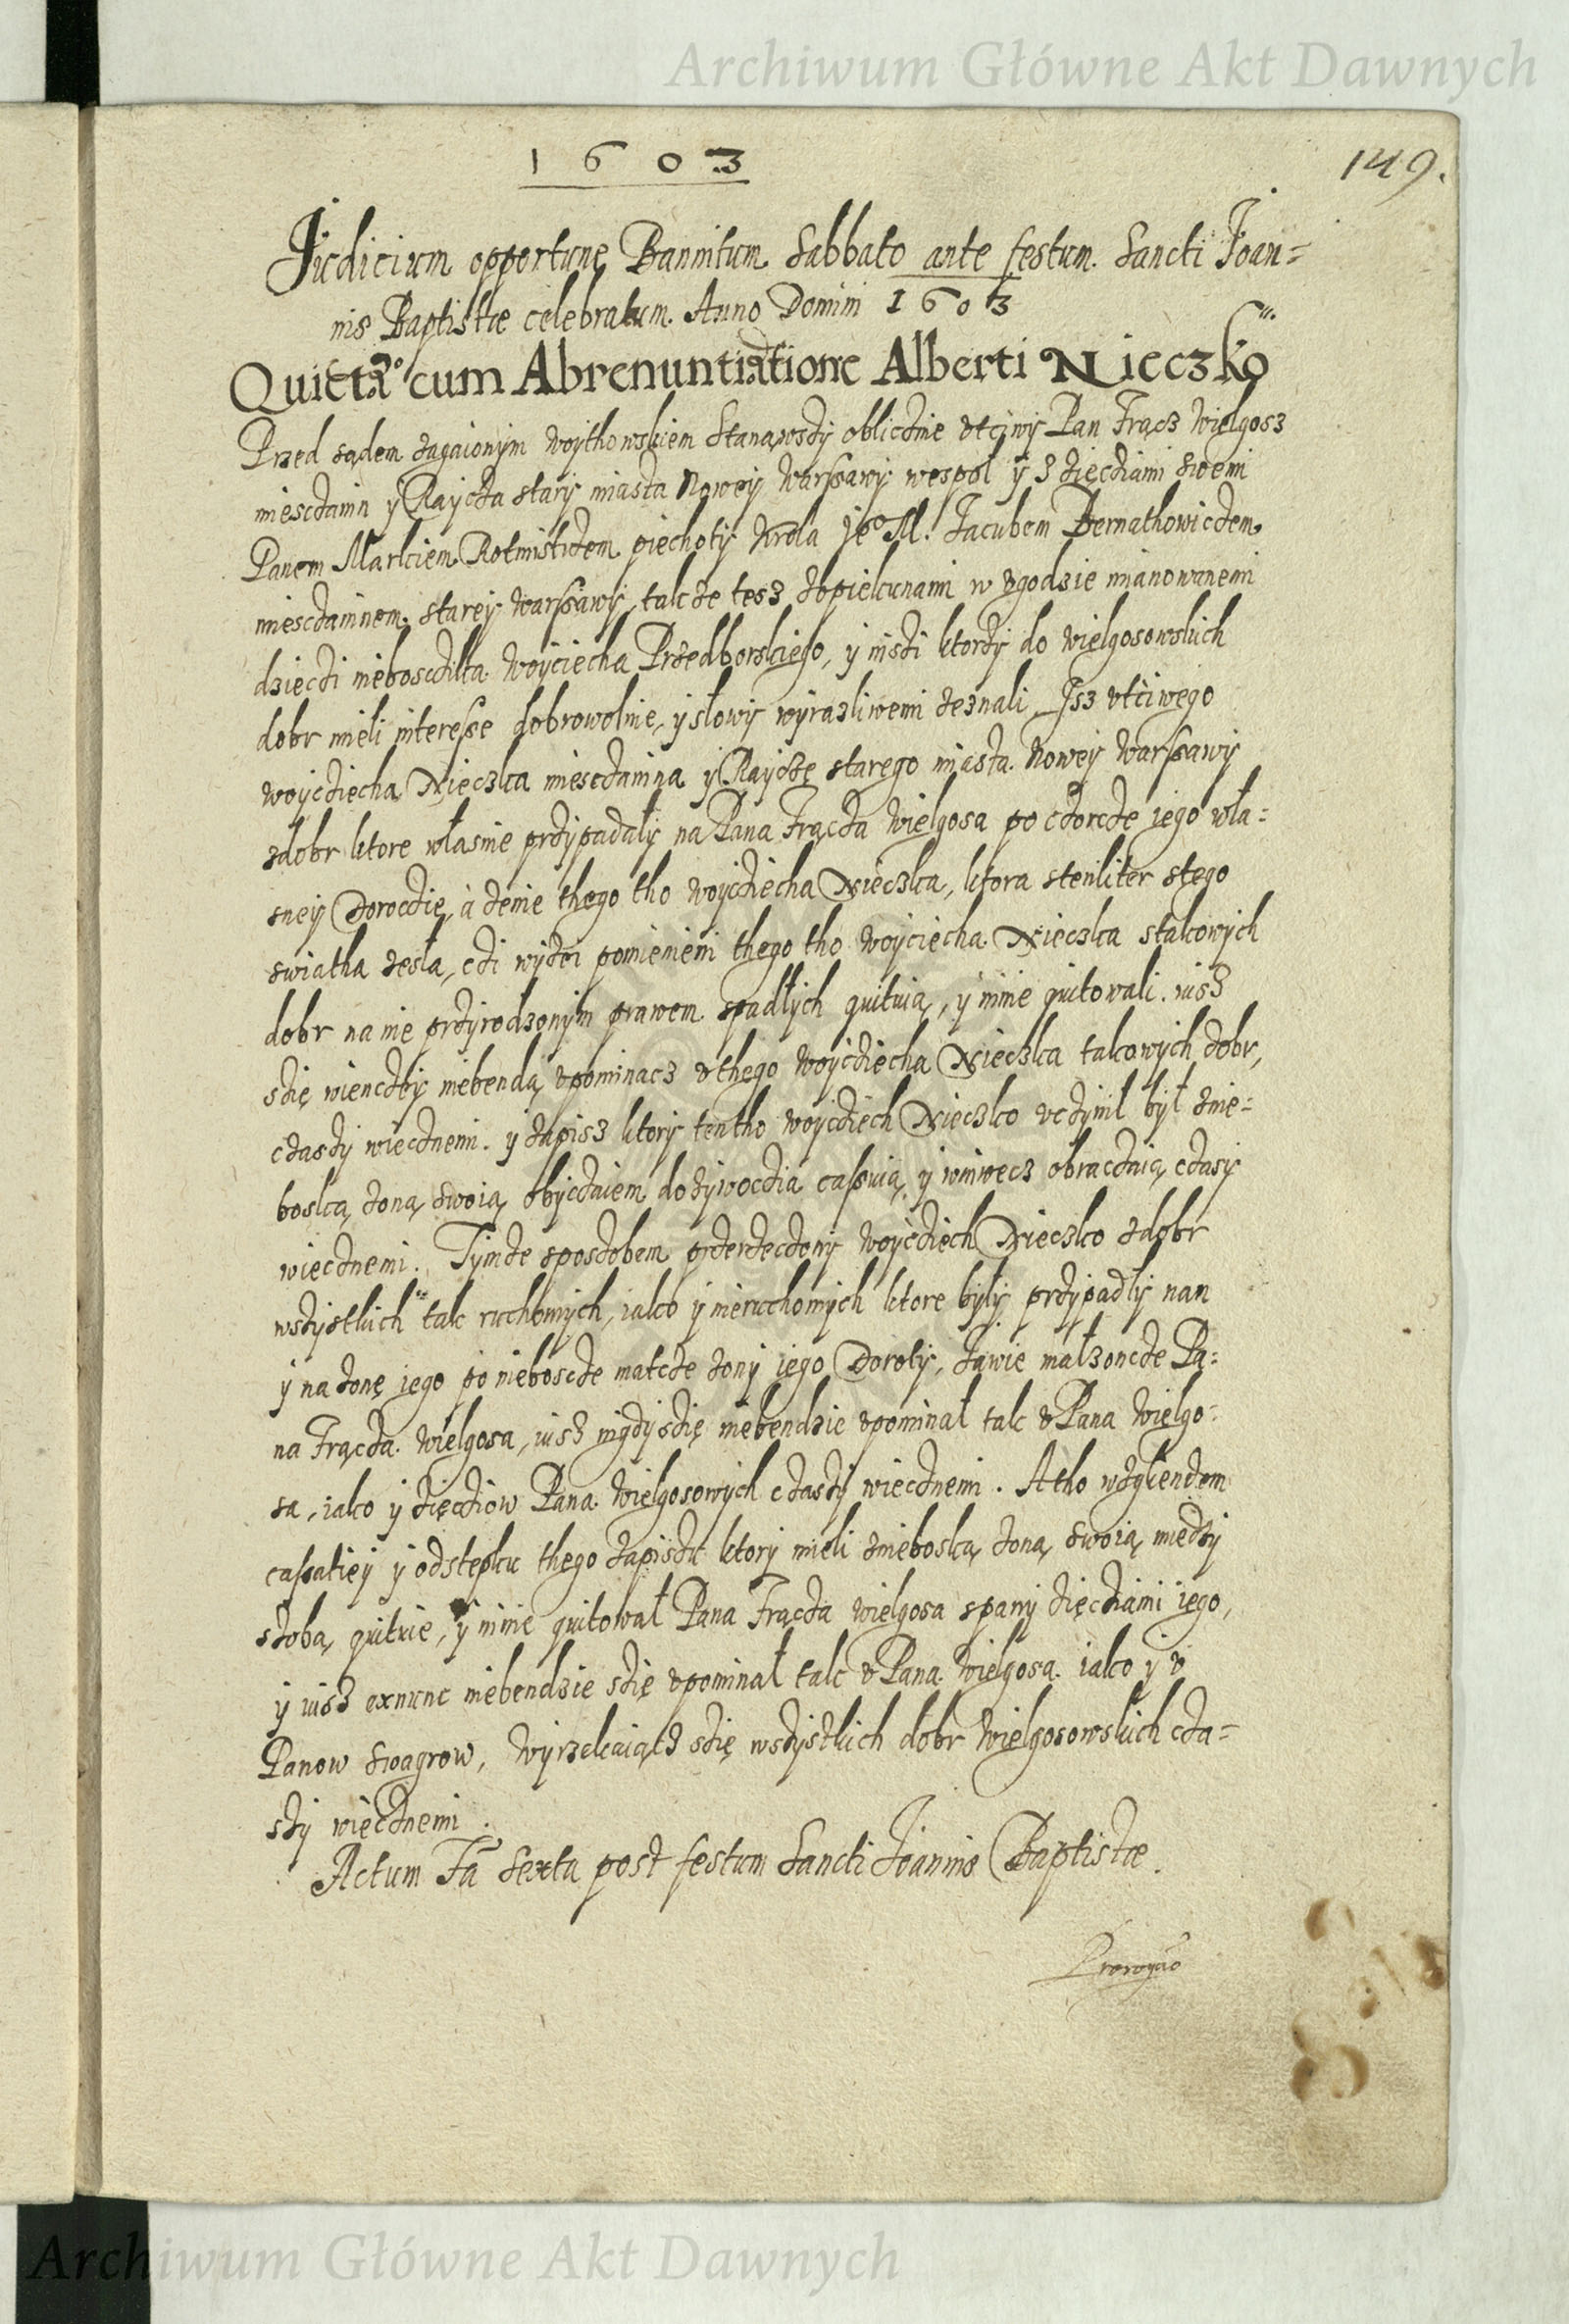 Archiwum Główne Akt Dawnych
1603
149.
Judicium opportune Bannitum Sabbato ante festum Sancti Joan=
nis Baptistæ celebratum. Anno Domini 1603
Quietao cum Abrenuntiatione Alberti Nieczko
Przed sądem zagaionÿm woÿthowskiem Stanąwszÿ oblicznie vtciwÿ Pan Frącz wielgosz
miesczanin ÿ Raÿcza starÿ miasta Noweÿ warszawÿ wespoł ÿ z dziećziami swemi
Panem Markiem Rotmistrzem piechotÿ Krola Jeo M. Jacubem Bernathowiczem
miesczaninem stareÿ warszawÿ, takze tesz zopiekunami w vgodzie mianowanemi
dzieczi nieboszczika Woÿciecha Przedborskiego, ÿ inszi ktorzÿ do wielgosowskich
dobr mieli interesse dobrowolnie, ÿ słowÿ wÿrazliwemi zeznali Jsz vtciwego
woÿcziecha Nieczka miesczanina ÿ Raÿczę starego miasta Noweÿ warszawÿ
zdobr ktore własnie przÿpadałÿ na Pana Frącza wielgosa po czorcze iego wła=
sneÿ Doroczie, á zenie thego tho woÿcziecha Nieczka, ktora steriliter stego
swiatha zesła, czi wÿzei pomienieni thego tho woÿciecha Nieczka stakowÿch
dobr na nie przÿrodzonÿm prawem spadłÿch quituią, ÿ inie quitowali. iusz
szię wienczeÿ niebendą vpominacz v thego woÿcziecha Nieczka takowÿch dobr,
czaszÿ wiecznemi. ÿ zapisz ktorÿ tentho woÿcziech Nieczko vczÿnił bÿł znie=
boską zoną swoią obÿczaiem dozÿwoczia cassuią, ÿ wniwecz obraczaią czasÿ
wiecznemi. Tÿmze sposzobem przerzeczonÿ woÿcziech Nieczko zdobr
wszÿstkich tak ruchomÿch, iako ÿ nieruchomÿch ktore bÿłÿ przÿpadłÿ nan
ÿ na zonę iego po nieboscze matcze zonÿ iego Dorotÿ, zawie małzoncze Pa=
na Frącza wielgosa, iusz nigdÿ szię niebendzie vpominał tak v Pana wielgo=
sa, iako ÿ dzieczÿow Pana wielgosowÿch czaszÿ wiecznemi. A tho wzglendem
cassatieÿ ÿ odstepku thego zapiszu ktorÿ mieli znieboską zoną swoią miedzÿ
szobą, quituie, ÿ inie quitował Pana Frącza wielgosa spanÿ dziecziami iego,
ÿ iusz exnunc niebendzie szię vpominał tak v Pana wielgosa iako ÿ v
Panow swagrow, wÿrzekaiącz szię wszÿstkich dobr wielgosowskich cza=
szÿ wiecznemi.
Actum Fa Sexta post festum Sancti Joannis Baptistæ.
Archiwum Główne Akt Dawnych